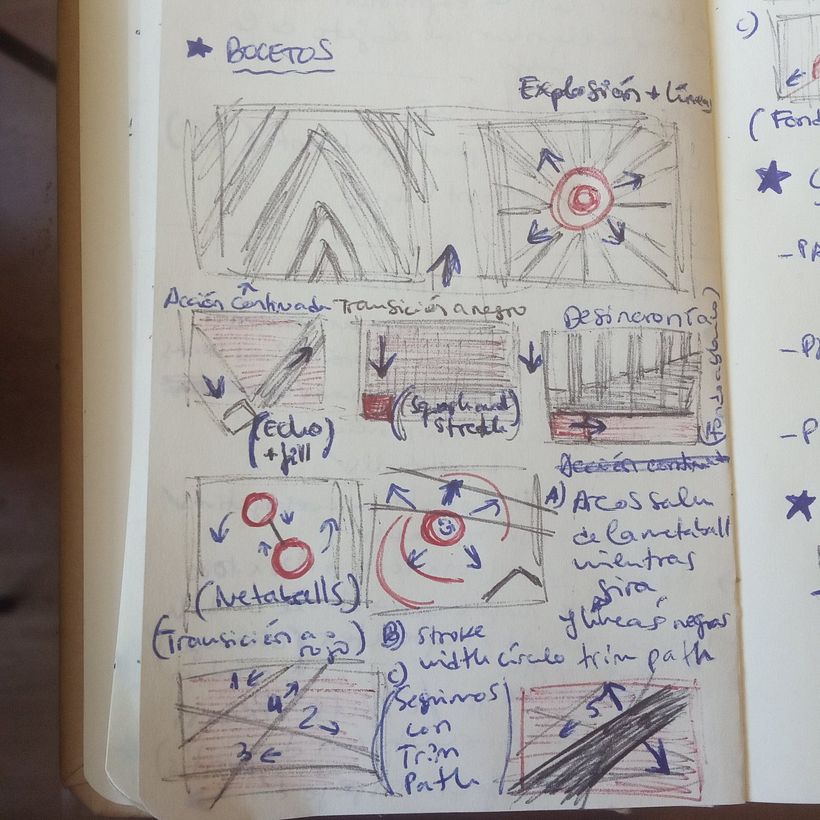 ★ BOCETOS
Explosión + Líneas
Acción Continuada
Transición a negro
Desincronía
(Fondo a blanco)
(Echo)
+ fill
(Squash and
stretch)
Acción continu
(Metaballs)
A) Arcos salen
de la metaball
mientras
gira
y líneas negras
(Transición a
rojo)
B) Stroke
width círculo trim path
C)
(Seguimos
con
Trim
Path)
1
4
2
3
5
C)
(Fond
-P
-P